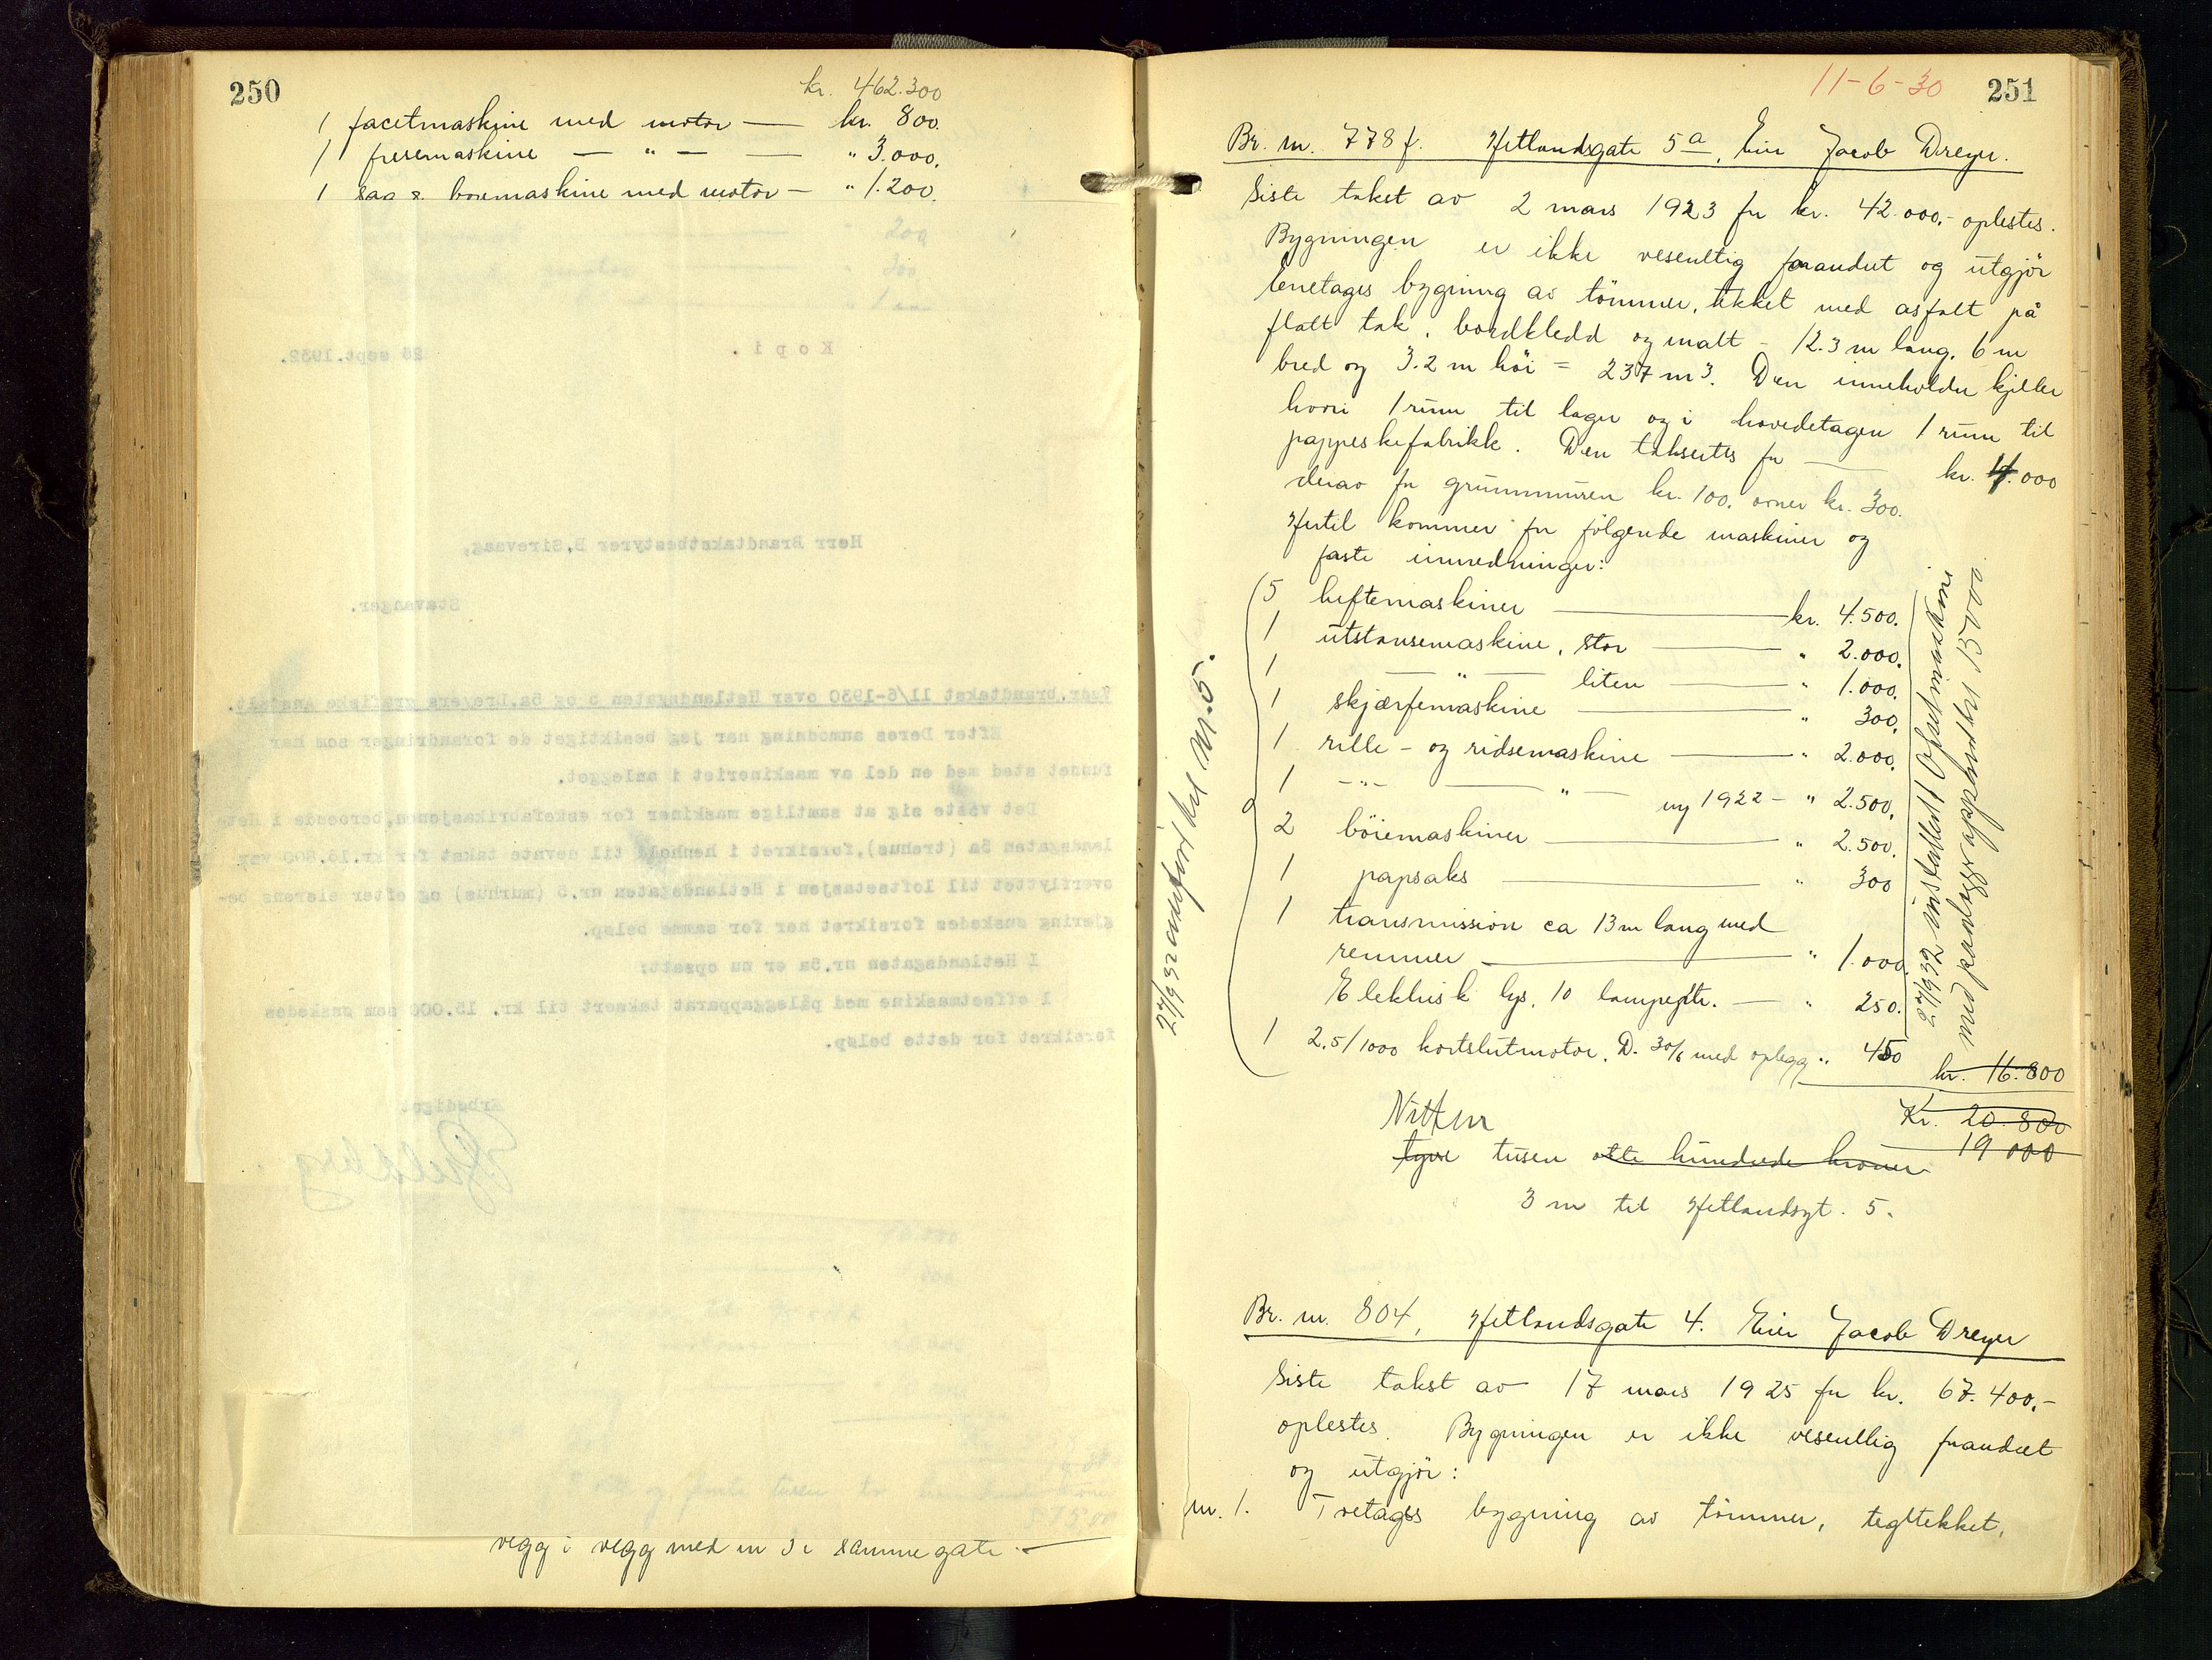 250
kr. 462.300
1 facetmaskine med motor — kr. 800.
1 fresemaskine — " — — " 3.000.
1 sag & boremaskine med motor — " 1.200.
200
300
Kopi.
26 sept. 1932.
Herr Brandtakstbestyrer B. Sirevaag,
Stavanger.
Vedr. brandtakst 11/6-1930 over Hetlandsgaten 5 og 5a. Dreyers grafiske Anstalt.
Efter Deres anmodning har jeg besiktiget de forandringer som har
funnet sted med en del av maskineriet i anlegget.
Det viste sig at samtlige maskiner for eskefabrikasjonen, beroende i Het-
landsgaten 5a (trehus), forsikret i henhold til nevnte takst for kr. 16.800 var
overflyttet til loftsetasjen i Hetlandsgaten nr. 5 (murhus) og efter eierens be-
gjering ønskedes forsikret her for samme beløp.
I Hetlandsgaten nr. 5a er nu opsatt:
1 offsetmaskine med påleggapparat taksert til kr. 15.000 som ønskedes
forsikret for dette beløp.
Ærbødigst
vegg i vegg med nr 3 i samme gate. —
11-6-30
251
Br. nr. 778 f. Hetlandsgate 5a, Eier Jacob Dreyer.
Siste takst av 2 mars 1923 for kr. 42.000.- oplestes.
Bygningen er ikke vesentlig forandret og utgjør
Enetages bygning av tømmer, tekket med asfalt på
flatt tak, bordkledd og malt - 12.3 m lang, 6 m
bred og 3.2 m høi = 237 m3. Den inneholder kjeller
hvori 1 rum til lager og i hovedetagen 1 rum til
pappeskefabrikk. Den takseres for — kr. 4.000
derav for grunnmuren kr. 100. ovner kr. 300.
Hertil kommer for følgende maskiner og
faste innredninger:
5 heftemaskiner — kr. 4.500.
1 utstansemaskine, stor — " 2.000.
1 — " — liten — " 1.000.
1 skjærfemaskine — " 300.
1 rille- og ridsemaskine — " 2.000.
1 -"- — " — ny 1922 - " 2.500.
2 bøiemaskiner — " 2.500.
1 papsaks — " 300
1 transmission ca 13 m lang med
remmer — " 1.000.
Elektrisk lys, 10 lampepkte. — " 250.
1 2.5/1000 kortslutmotor. D. 30/6 med oplegg " 450
kr. 16.800
Kr. 20.800
19 000
Nitten
tyve tusen otte hundrede kroner
3 m til Hetlandsgt. 5.
27/9 32 overført til nr. 5.
27/9 32 installert 1 Ofsetmaskine
med påleggerapparat kr 15000.
Br. nr. 804, Hetlandsgate 4. Eier Jacob Dreyer
Siste takst av 17 mars 1925 for kr. 67.400.-
oplestes. Bygningen er ikke vesentlig forandret
og utgjør:
nr. 1. Toetages bygning av tømmer, tegltekket,